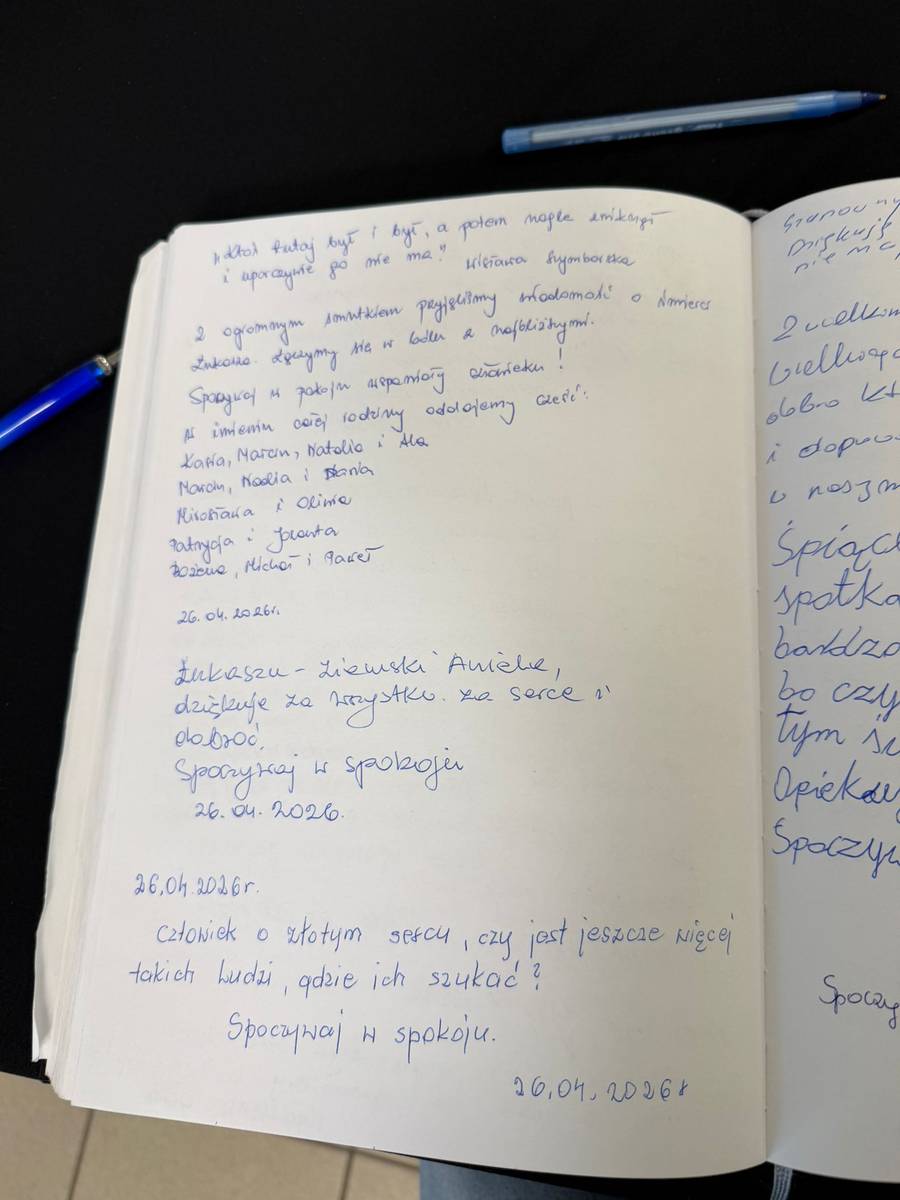 "Ktoś tutaj był i był, a potem nagle zniknął
i uporczywie go nie ma"   Wisława Szymborska
Z ogromnym smutkiem przyjęliśmy wiadomość o śmierci
Łukasza. Łączymy się w bólu z najbliższymi.
Spoczywaj w pokoju wspaniały człowieku!
W imieniu całej rodziny oddajemy cześć:
Kasia, Marcin, Natalia i Ala
Marcin, Nadia i Dania
Mirosława i Oliwia
Patrycja i Jolanta
Bożena, Michał i Paweł
26.04.2026r.
Łukaszu - ziemski Aniele,
dziękuje za wszystko. za serce i
dobroć.
Spoczywaj w spokoju
26.04.2026.
26.04.2026r.
Człowiek o złotym sercu, czy jest jeszcze więcej
takich ludzi, gdzie ich szukać?
Spoczywaj w spokoju.
26.04.2026r
Dziękuję
nie ma
dobro
i
w naszym
Śpiąc
spotka
bardzo
bo czy
tym
Opiekuj
Spoczyw
Spoczy